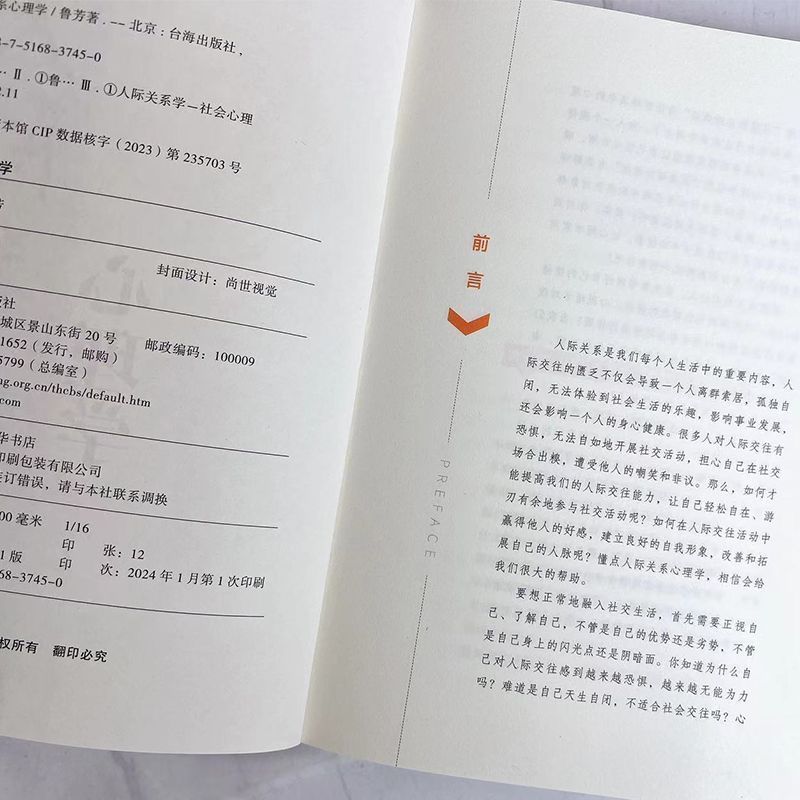 系心理学 / 鲁芳著 . -- 北京 : 台海出版社 ,
-7-5168-3745-0
… Ⅱ . ①鲁… Ⅲ . ①人际关系学—社会心理
.11
本馆 CIP 数据核字 ( 2023 ) 第 235703 号
学
封面设计：尚世视觉
版社
城区景山东街 20 号 邮政编码：100009
1652（发行，邮购）
5799（总编室）
ng.org.cn/thcbs/default.htm
华书店
印刷包装有限公司
装订错误，请与本社联系调换
00 毫米 1/16
印 张：12
1 版 印 次：2024 年 1 月第 1 次印刷
68-3745-0
权所有 翻印必究
前言
PREFACE
人际关系是我们每个人生活中的重要内容，人
际交往的匮乏不仅会导致一个人离群索居，孤独自
闭，无法体验到社会生活的乐趣，影响事业发展，
还会影响一个人的身心健康。很多人对人际交往有
恐惧，无法自如地开展社交活动，担心自己在社交
场合出糗，遭受他人的嘲笑和非议。那么，如何才
能提高我们的人际交往能力，让自己轻松自在、游
刃有余地参与社交活动呢？如何在人际交往活动中
赢得他人的好感，建立良好的自我形象，改善和拓
展自己的人脉呢？懂点人际关系心理学，相信会给
我们很大的帮助。
要想正常地融入社交生活，首先需要正视自
己、了解自己，不管是自己的优势还是劣势，不管
是自己身上的闪光点还是阴暗面。你知道为什么自
己对人际交往感到越来越恐惧，越来越无能为力
吗？难道是自己天生自闭，不适合社会交往吗？心